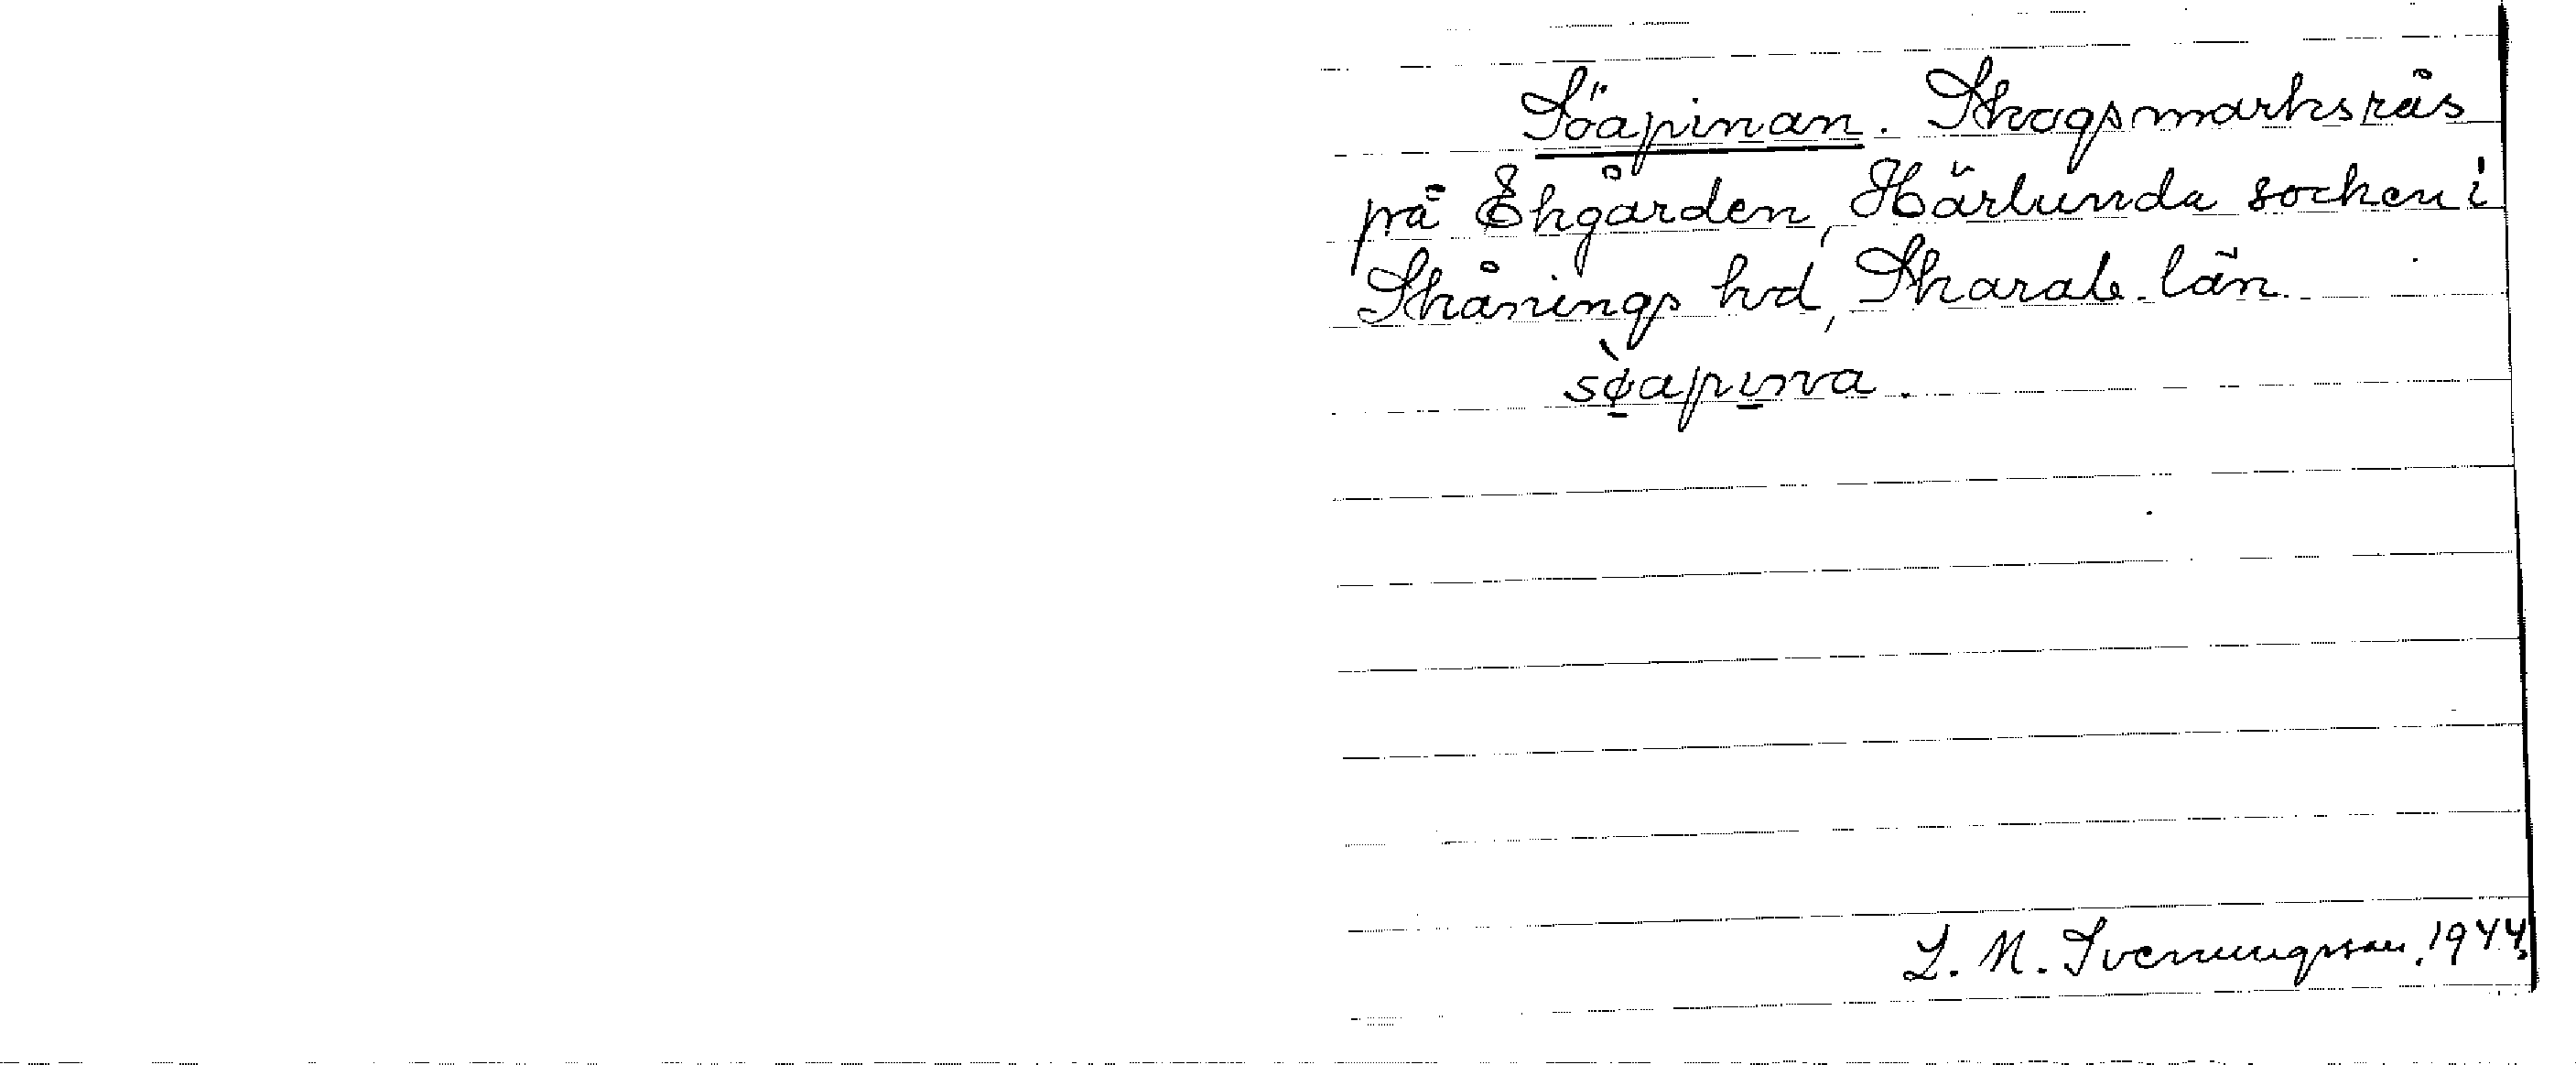 Söapinan. Skogsmarksrås
på Ekgården, Härlunda socken i
Skånings hd, Skarab. län.
sø̀apına.
L. M. Svenungsson, 1944.